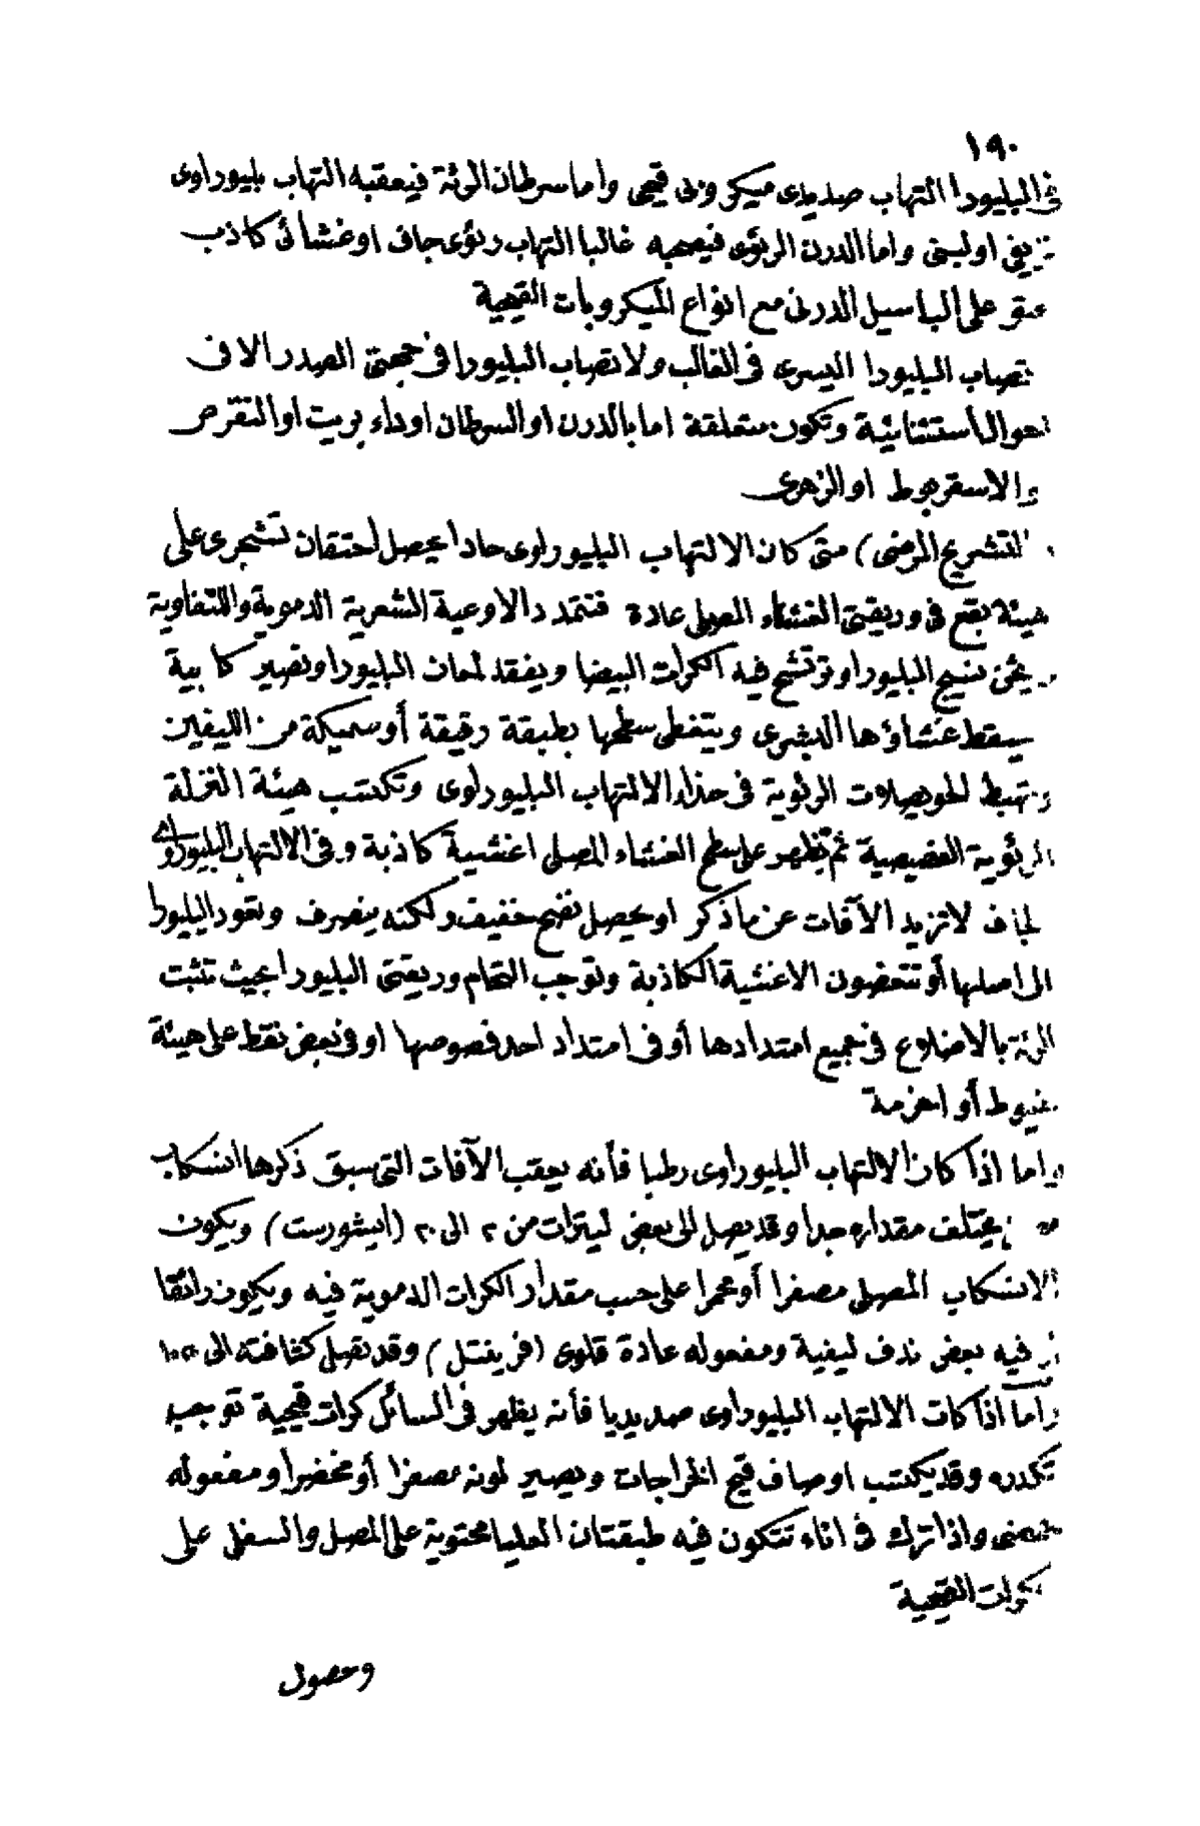 ١٩٠
في البليورا التهاب صديدى ميكروبى قيحى واما سرطان الرئة فيعقبه التهاب بليوراوى
نزيفى اوليفى واما الدرن الرئوى فيصحبه غالبا التهاب رئوى جاف اوغشائى كاذب
على الباسيل الدرنى مع انواع الميكروبات القيحية
تصاب البليورا اليسرى فى الغالب ولا تصاب البليورا فى جهتى الصدر الا فى
احوال استثنائية وتكون متعلقة اما بالدرن او السرطان اوداء بريت او النقرص
والاسقربوط اوالزهرى
التشريح المرضى) متى كان الالتهاب البليوراوى حادا يحصل احتقان تشجرى على
هيئة بقع فى وريقتى الغشاء المصلى عادة فتتمدد الاوعية الشعرية الدموية واللنفاوية
نسيج البليورا وترتشح فيه الكرات البيضا ويفقد لمعان البليورا وتصير كابية
يسقط غشاؤها البشرى ويتغطى سطحها بطبقة رقيقة أوسميكة من الليفين
وتهبط الحويصلات الرئوية فى حذاء الالتهاب البليوراوى وتكتسب هيئة النزلة
الرئوية الفصيصية ثم تظهر على سطح الغشاء المصلى اغشية كاذبة وفى الالتهاب البليوراوى
الجاف لا تزيد الآفات عن ما ذكر او يحصل نضح خفيف ولكنه ينصرف وتعود البليورا
الى اصلها أو تتعضون الاغشية الكاذبة وتوجب التحام وريقتى البليورا بحيث تثبت
الرئة بالاضلاع فى جميع امتدادها أو فى امتداد احد فصوصها او فى بعض نقط على هيئة
خيوط أو احزمة
واما اذا كان الالتهاب البليوراوى رطبا فأنه يعقب الآفات التى سبق ذكرها انسكاب
يختلف مقداره جدا وقد يصل الى بعض ليترات من ٢ الى ٢٠ (ايشورست) ويكون
الانسكاب المصلى مصفرا أو محمرا على حسب مقدار الكرات الدموية فيه ويكون رائقا
فيه بعض ندف ليفية ومفعوله عادة قلوى (فريفتل) وقد تصل كثافته الى
واما اذا كان الالتهاب البليوراوى صديديا فأنه يظهر فى السائل كرات قيحية توجب
تكدره وقد يكتسب اوصاف قيح الخراجات ويصير لونه مصفرا أو مخضرا ومفعوله
حمضى واذا ترك فى اناء تتكون فيه طبقتان العليا محتوية على المصل والسفلى على
الكرات القيحية
وحصول